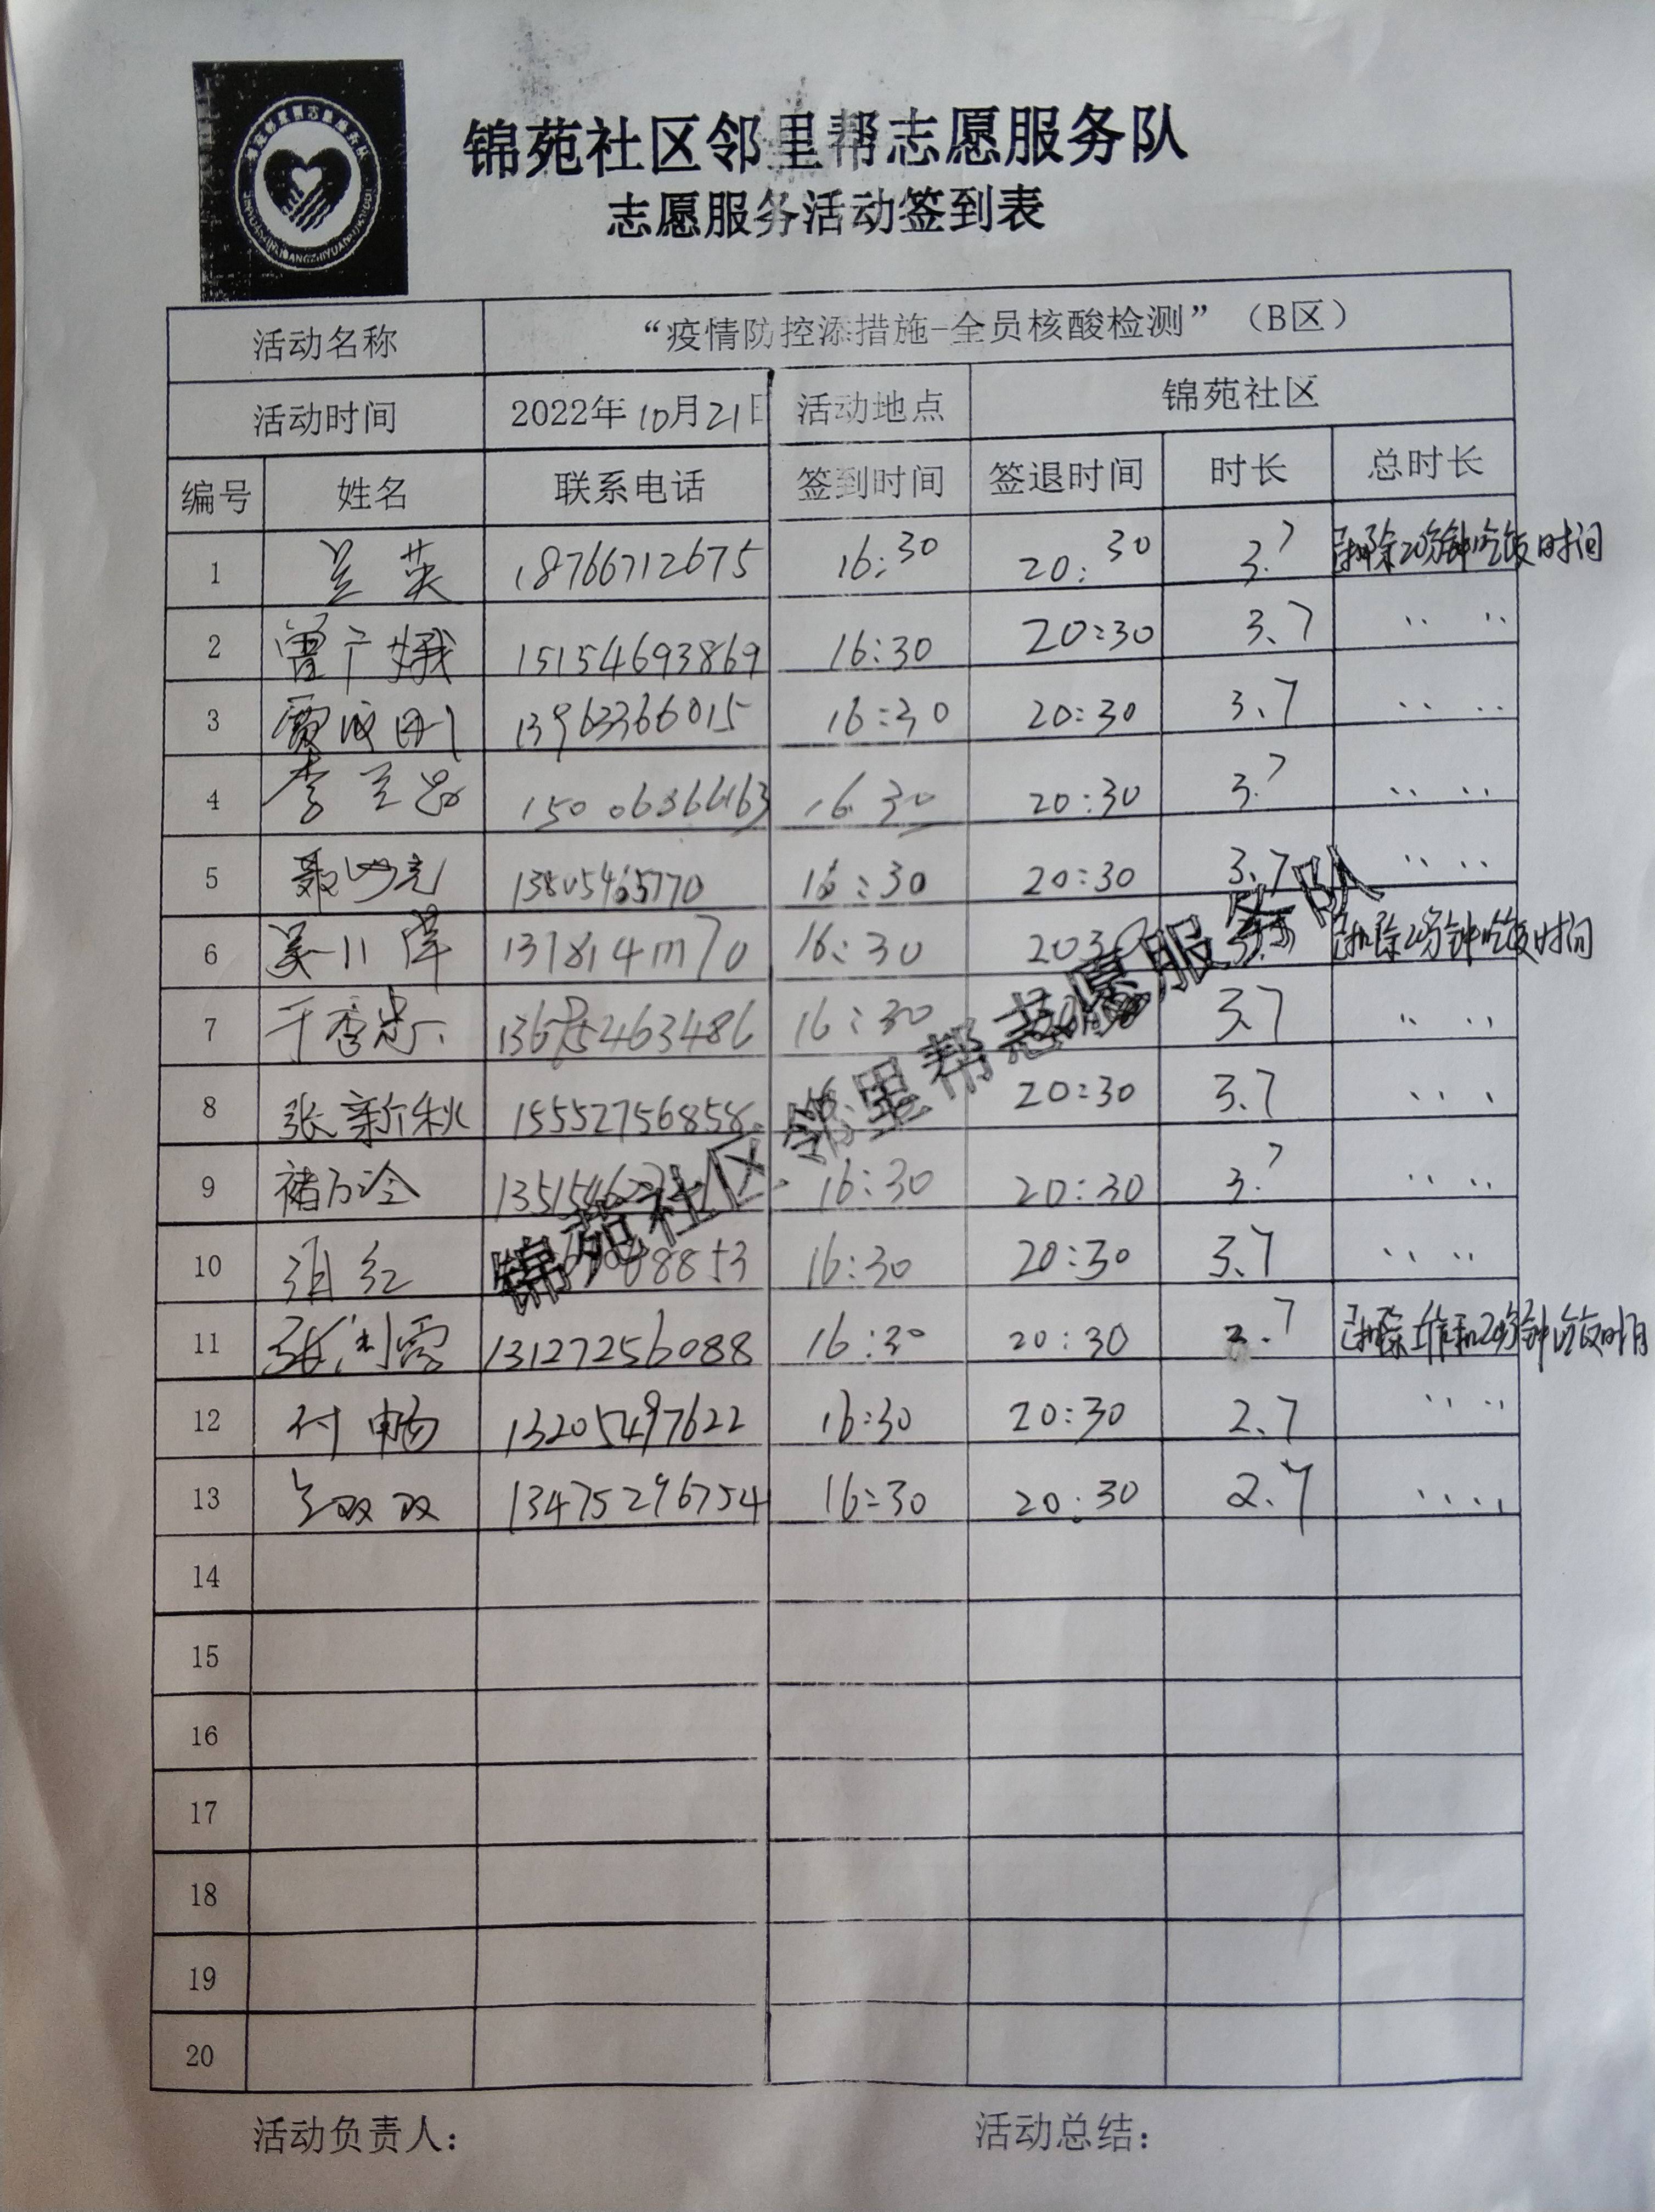 锦苑社区邻里帮志愿服务队
志愿服务活动签到表
活动名称 “疫情防控添措施-全员核酸检测”（B区）
活动时间 2022年10月21日 活动地点 锦苑社区
编号 姓名 联系电话 签到时间 签退时间 时长 总时长
1 兰英 18766712675 16:30 20:30 3.7 已扣除20分钟吃饭时间
2 曹广娥 15154693869 16:30 20:30 3.7 〃 〃
3 13963366015 16:30 20:30 3.7 〃 〃
4 李兰 16 30 20:30 3.7 〃 〃
5 16:30 20:30 3.7 〃 〃
6 16:30 2030 已扣除20分钟吃饭时间
7 于秀忠 16:30 3.7 〃 〃
8 张新秋 15552756858 20:30 3.7 〃 〃
9 褚万冷 16:30 20:30 3.7 〃 〃
10 红 16:30 20:30 3.7 〃 〃
11 张 13127256088 16:30 20:30 2.7 已扣除工作和20分钟吃饭时间
12 付畅 13205497622 16:30 20:30 2.7 〃 〃
13 双双 13475296754 16:30 20:30 2.7 〃 〃
14
15
16
17
18
19
20
锦苑社区邻里帮志愿服务队
活动负责人： 活动总结：